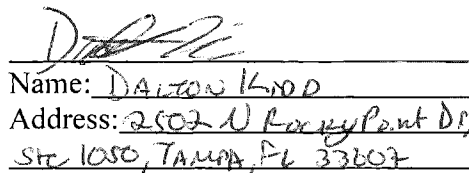 Name: DALTON KIDD
Address: 2502 N Rocky Point Dr,
Ste 1050, TAMPA, FL 33607